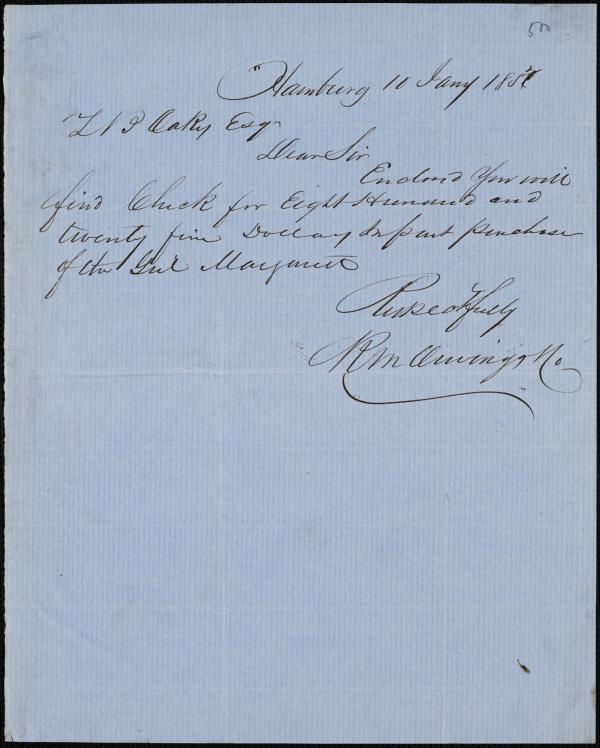 500
Hamburg 10 Jany 1857
Z B Oakes Esqr
Dear Sir
Enclosed You will
find Check for Eight Hundred and
twenty five Dollars In part purchase
of the Girl Margarett
Respectfully
R M Owings & Co